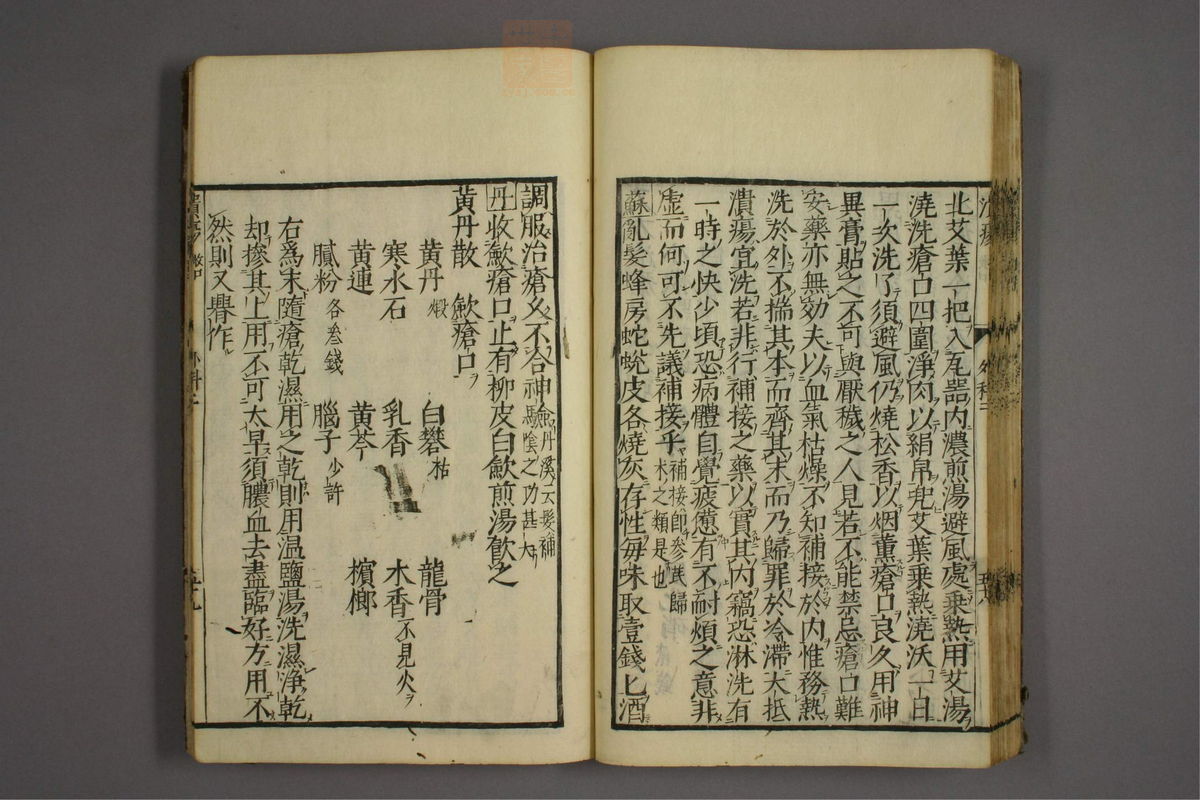 北艾葉一把入瓦器内濃煎湯避風處乗熱用艾湯
澆洗瘡口四圍淨肉以絹帛兜艾葉乗熱澆沃一日
一次洗了須避風仍燒松香以烟薫瘡口良久用神
異膏貼之不可與厭穢之人見若不能禁忌瘡口難
安藥亦無効夫以血氣枯燥不知補接於内惟務熱
洗於外不揣其本而齊其末而乃歸罪於冷滯大抵
潰瘍宜洗若非行補接之藥以實其内竊恐淋洗有
一時之快少頃恐病體自覺疲憊有不耐煩之意非
虚而何可不先議補接乎補接即參芪歸术之類是也
蘇亂髮蜂房蛇蛻皮各燒灰存性毎味取壹錢匕酒
調服治瘡久不合神驗丹溪云髮補陰之功甚大
丹收歛瘡口止有柳皮白歛煎湯飲之
黄丹散 歛瘡口
黄丹煅 白礬枯 龍骨
寒水石 乳香 木香不見火
黄連 黄芩 檳榔
膩粉各叁錢 腦子少許
右爲末隨瘡乾濕用之乾則用温鹽湯洗濕淨乾
却摻其上用不可太早須膿血去盡臨好方用不
然則又舉作